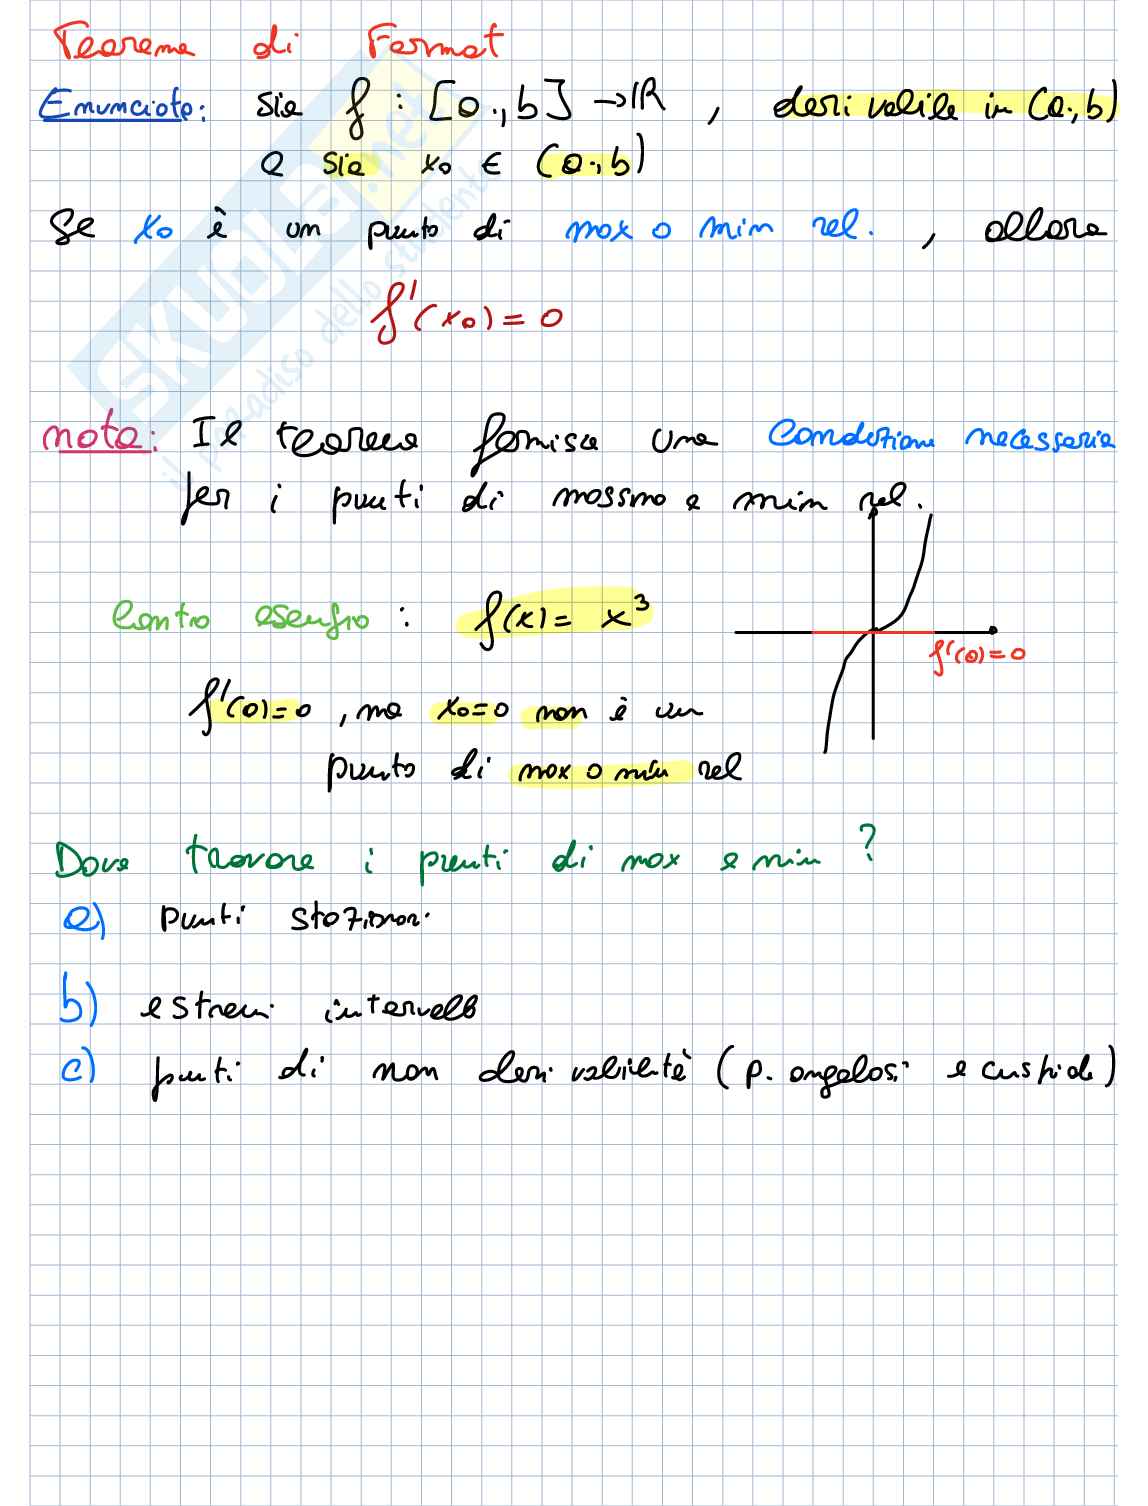 Teorema di Fermat
Enunciato: sia f : [a, b] → ℝ , derivabile in (a, b)
e sia x₀ ∈ (a, b)
Se x₀ è un punto di max o min rel. , allora
f'(x₀) = 0
nota: Il teorema fornisce una condizione necessaria
per i punti di massimo e min rel.
Contro esempio : f(x) = x³
f'(0) = 0
f'(0)=0 , ma x₀=0 non è un
punto di max o min rel
Dove trovare i punti di max e min ?
a) punti stazionari
b) estremi intervallo
c) punti di non derivabilità (p. angolosi e cuspide)
SKUOLA.net
il paradiso dello studente